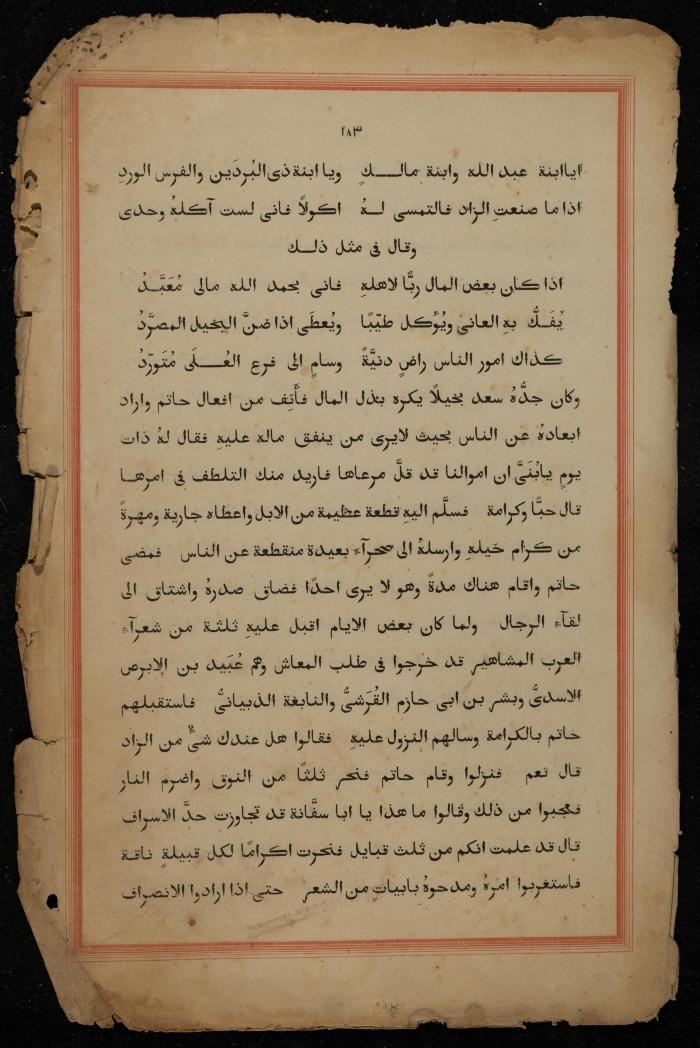 ٢٨٣
ايا ابنة عبد الله وابنة مالـــكٍ ويا ابنة ذى البُردَين والفرس الوردِ
اذا ما صنعتِ الزاد فالتمسى لـهُ اكولًا فانى لست آكلهُ وحدى
وقال فى مثل ذلـك
اذا كـان بعض المال ربًّا لاهلهِ فانى بحمد الله مالى مُعَبَّـدُ
يُفَـكُّ بهِ العانى ويُؤكل طيّبًا ويُعطَى اذا ضنَّ البخيل المصرَّدُ
كذاك امور الناس راضٍ دنيَّةً وسامٍ الى فرع العُــلَى مُتَورّدُ
وكان جدُّهُ سعد بخيلًا يكره بذل المال فأَنِف من افعال حاتم واراد
ابعادهُ عن الناس بحيث لايرى من ينفق ماله عليهِ فقال لهُ ذات
يومٍ يابُنَىَّ ان اموالنا قد قلَّ مرعاها فاريد منك التلطف فى امرهـا
قال حبًّا وكرامة فسلَّم اليهِ قطعة عظيمة من الابل واعطاه جارية ومهرةً
من كرام خيلهِ وارسلهُ الى صحرآء بعيدة منقطعة عن الناس فمضى
حاتم واقام هناك مدةً وهو لا يرى احدًا فضاق صدرهُ واشتاق الى
لقآء الرجال ولما كان بعض الايام اقبل عليهِ ثلثة من شعرآء
العرب المشاهير قد خرجوا فى طلب المعاش وهم عُبَيد بن الابرص
الاسدىُّ وبشر بن ابى حازم القُرَشىُّ والنابغة الذبيانىُّ فاستقبلهم
حاتم بالكرامة وسالهم النزول عليهِ فقالوا هل عندك شىءٌ من الزاد
قال نعم فنزلوا وقام حاتم فنحر ثلثًا من النوق واضرم النار
فعجبوا من ذلك وقالوا ما هذا يا ابا سفَّانة قد تجاوزت حدَّ الاسراف
قال قد علمت انكم من ثلث قبايل فنحرت اكرامًا لكل قبيلةٍ ناقة
فاستغربوا امرهُ ومدحوهُ بابياتٍ من الشعر حتى اذا ارادوا الانصراف